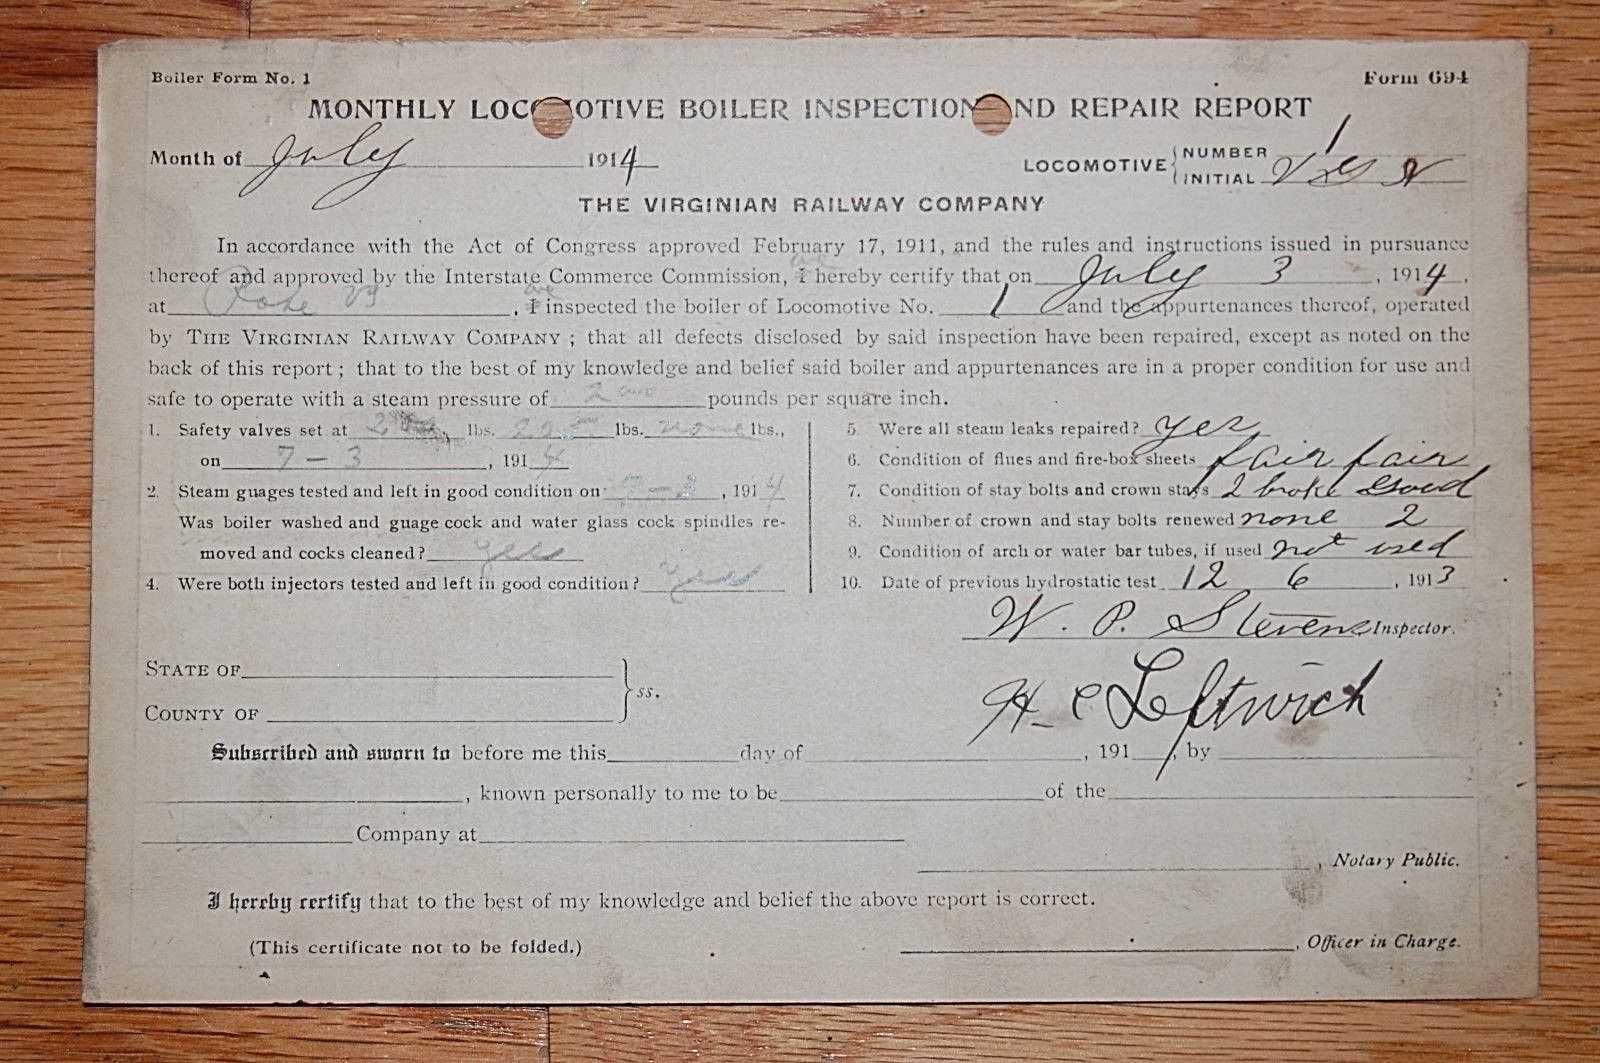 Boiler Form No. 1
Form 694
MONTHLY LOCOMOTIVE BOILER INSPECTION AND REPAIR REPORT
Month of July 1914
LOCOMOTIVE { NUMBER 1
INITIAL
THE VIRGINIAN RAILWAY COMPANY
In accordance with the Act of Congress approved February 17, 1911, and the rules and instructions issued in pursuance
thereof and approved by the Interstate Commerce Commission, I we hereby certify that on July 3, 1914,
at Roke Va, I we inspected the boiler of Locomotive No. 1 and the appurtenances thereof, operated
by THE VIRGINIAN RAILWAY COMPANY; that all defects disclosed by said inspection have been repaired, except as noted on the
back of this report; that to the best of my knowledge and belief said boiler and appurtenances are in a proper condition for use and
safe to operate with a steam pressure of pounds per square inch.
1. Safety valves set at lbs. 205 lbs. none lbs.,
on 7-3, 1914
2. Steam guages tested and left in good condition on 7-3, 1914
Was boiler washed and guage cock and water glass cock spindles re-
moved and cocks cleaned? yes
4. Were both injectors tested and left in good condition? yes
5. Were all steam leaks repaired? yes
6. Condition of flues and fire-box sheets fair fair
7. Condition of stay bolts and crown stays 2 broke Good
8. Number of crown and stay bolts renewed none 2
9. Condition of arch or water bar tubes, if used not used
10. Date of previous hydrostatic test 12 6, 1913
W. P. Stevens Inspector.
STATE OF
COUNTY OF } ss.
H. C Leftwich
Subscribed and sworn to before me this day of , 191 , by
, known personally to me to be of the
Company at
, Notary Public.
I hereby certify that to the best of my knowledge and belief the above report is correct.
(This certificate not to be folded.)
, Officer in Charge.